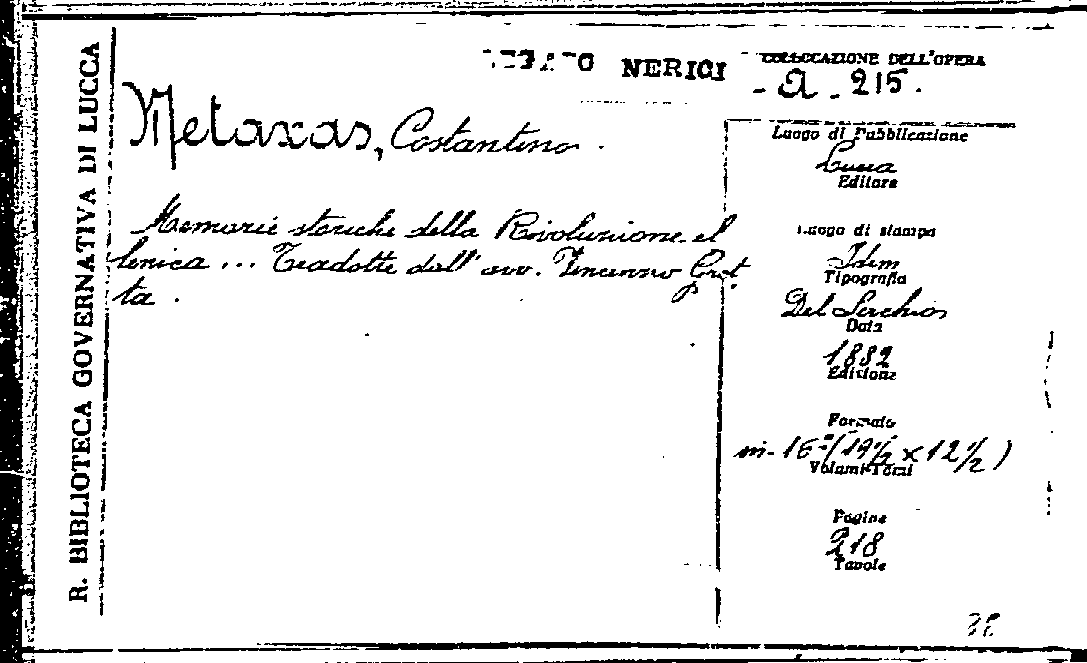 R. BIBLIOTECA GOVERNATIVA DI LUCCA
NERICI
COLLOCAZIONE DELL'OPERA
- A - 215.
Metaxas, Costantino.
Memorie storiche della Rivoluzione el
lenica ... Tradotte dall'avv. Vincenzo Grot
ta.
Luogo di Pubblicazione
Lucca
Editore
Luogo di stampa
Idem
Tipografia
Del Serchio
Data
1882
Edizione
Formato
in-16º (19 1/2 x 12 1/2)
Volumi-Tomi
Pagine
218
Tavole